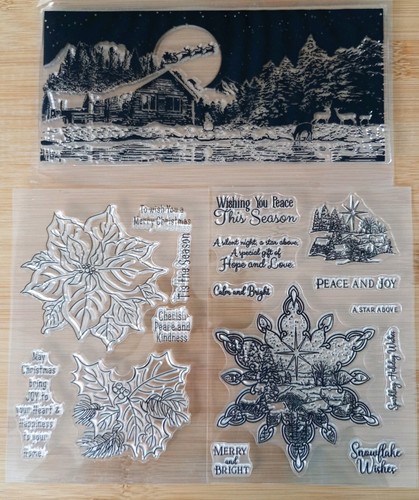 To wish You a
Merry Christmas
'Tis the Season
Cherish
Peace and
Kindness
May
Christmas
bring
JOY to
your Heart &
Happiness
to your
Home.
Wishing You Peace
This Season
A silent night, a star above,
A special gift of
Hope and Love.
Calm and Bright
PEACE AND JOY
A STAR ABOVE
MERRY
and
BRIGHT
Snowflake
Wishes